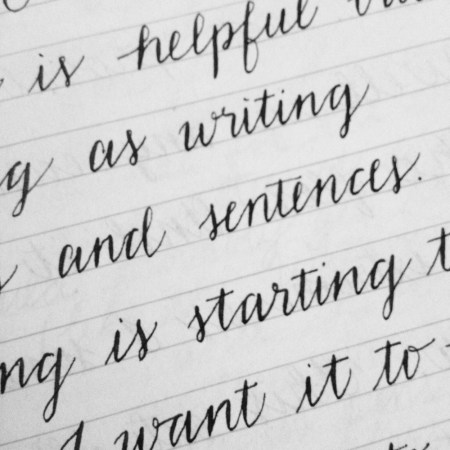 is helpful
g as writing
and sentences.
ng is starting t
I want it to